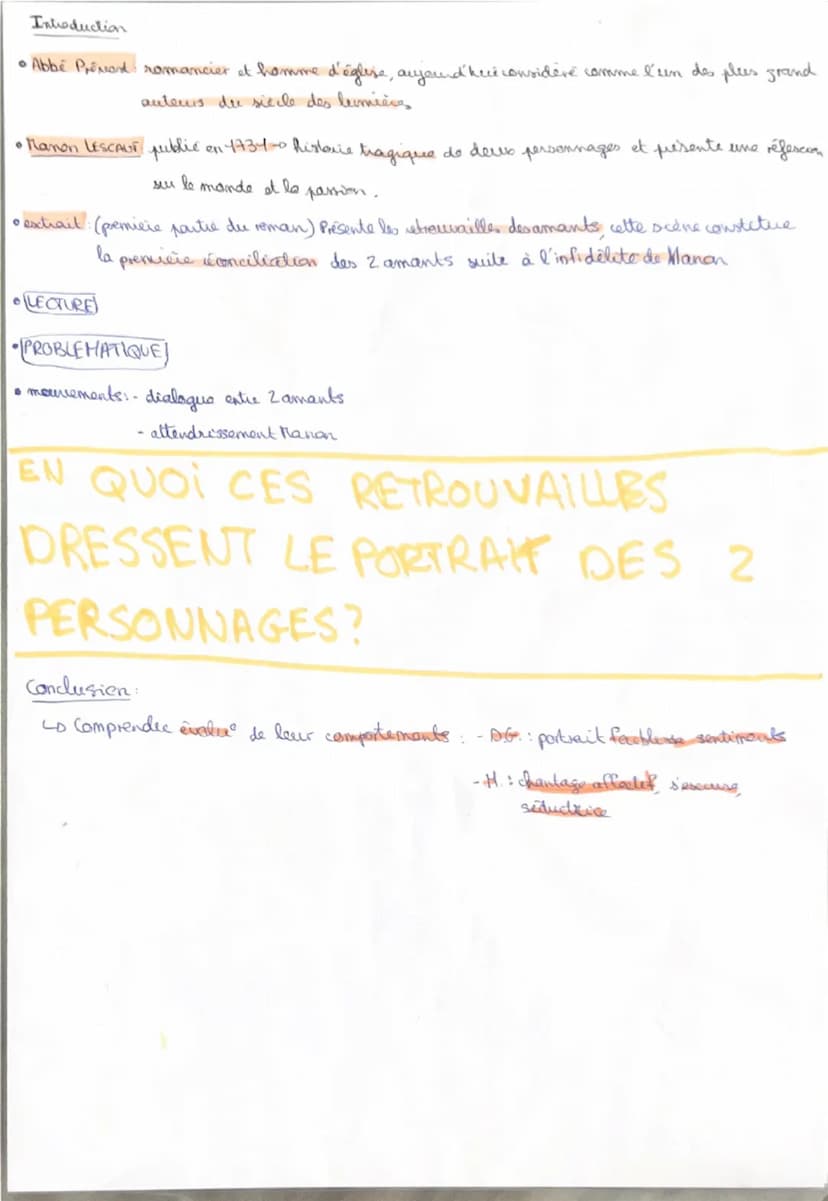 Introduction
• Abbé Prévost : romancier et homme d'église, aujourd'hui considéré comme l'un des plus grand
auteurs du siècle des lumières
• Manon LESCAUT publié en 1731 → histoire tragique de deux personnages et présente une
sur le monde et la passion.
• extrait : (première partie du roman) Présente les retrouvailles des amants, cette scène constitue
la première réconciliation des 2 amants suite à l'infidélité de Manon
• LECTURE
• PROBLEMATIQUE
• mouvements : - dialogue entre 2 amants
- attendrissement Manon
EN QUOi CES RETROUVAiLLES
DRESSENT LE PORTRAIT DES 2
PERSONNAGES ?
Conclusion :
↳ Comprendre évolu° de leur comportements : - DG. : portrait faiblesse sentiments
- M. : chantage affectif, s'excuse,
séductrice